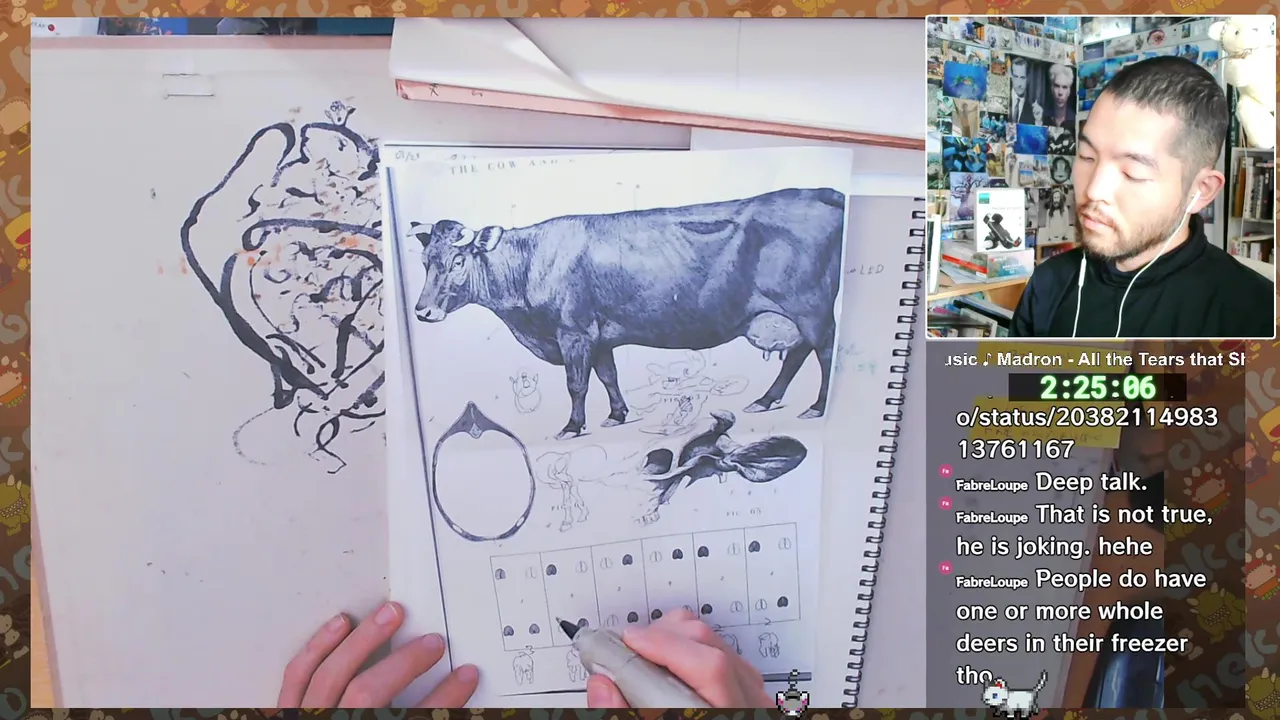 THE COW AND
FIG 65
usic ♪ Madron - All the Tears that Sh
2:25:06
o/status/20382114983
13761167
FabreLoupe Deep talk.
FabreLoupe That is not true,
he is joking. hehe
FabreLoupe People do have
one or more whole
deers in their freezer
tho